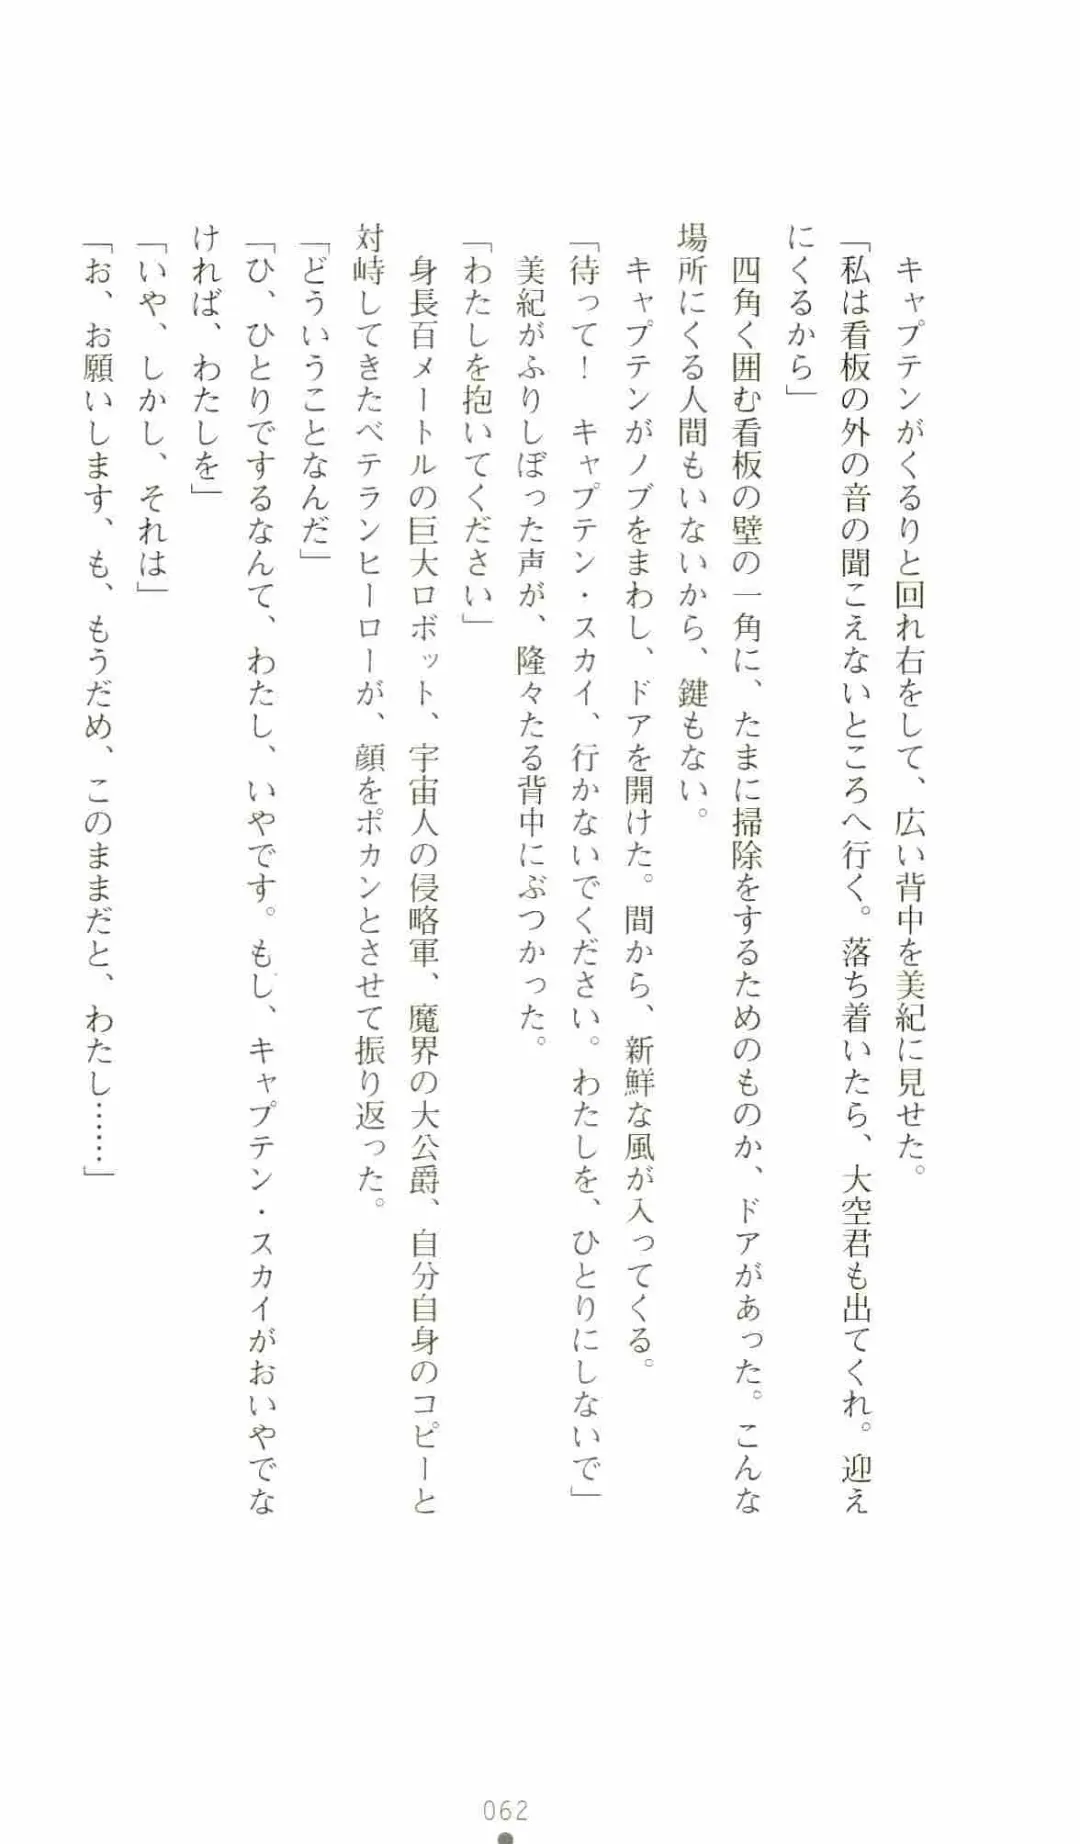 キャプテンがくるりと回れ右をして、広い背中を美紀に見せた。
「私は看板の外の音の聞こえないところへ行く。落ち着いたら、大空君も出てくれ。迎え
にくるから」
四角く囲む看板の壁の一角に、たまに掃除をするためのものか、ドアがあった。こんな
場所にくる人間もいないから、鍵もない。
キャプテンがノブをまわし、ドアを開けた。間から、新鮮な風が入ってくる。
「待って！　キャプテン・スカイ、行かないでください。わたしを、ひとりにしないで」
美紀がふりしぼった声が、隆々たる背中にぶつかった。
「わたしを抱いてください」
身長百メートルの巨大ロボット、宇宙人の侵略軍、魔界の大公爵、自分自身のコピーと
対峙してきたベテランヒーローが、顔をポカンとさせて振り返った。
「どういうことなんだ」
「ひ、ひとりでするなんて、わたし、いやです。もし、キャプテン・スカイがおいやでな
ければ、わたしを」
「いや、しかし、それは」
「お、お願いします、も、もうだめ、このままだと、わたし……」
062